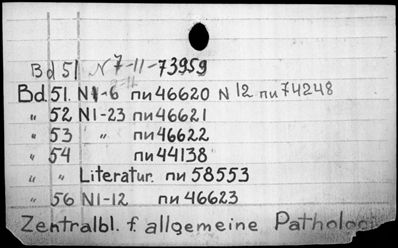 Bd 51 N 7-11-73959
Bd. 51. N1-6 пи46620 N 12 пи74248
" 52 N1-23 пи46621
" 53 " пи46622
" 54 пи44138
" " Literatur. пи 58553
" 56 N1-12 пи 46623
Zentralbl. f. allgemeine Pathologie